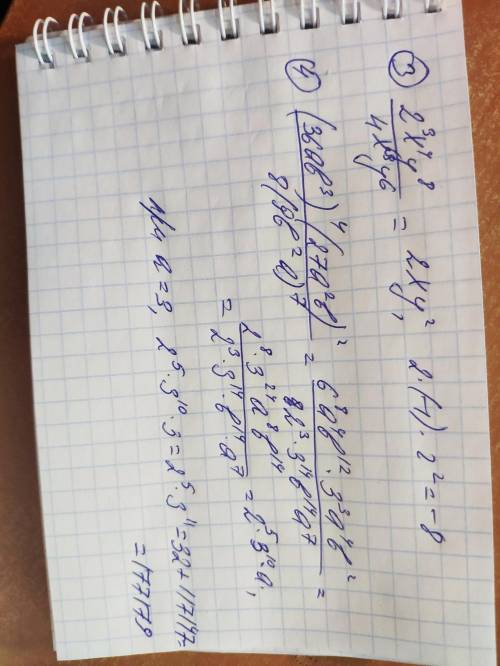 ③ 2³x⁴y⁸ / 4x³y⁶ = 2xy², 2·(-1)·2² = -8
④ (36ab³)⁴(27a²b)² / 8(9b²a)⁷ = 6⁸a⁴b¹²·3³a⁴b² / 2³·3¹⁴b¹⁴a⁷ =
= 2⁸·3²⁴a⁸b¹⁴ / 2³·3¹⁴·b¹⁴·a⁷ = 2⁵·3¹⁰·a,
При a=3, 2⁵·3¹⁰·3=2⁵·3¹¹=32+177147=
=177179